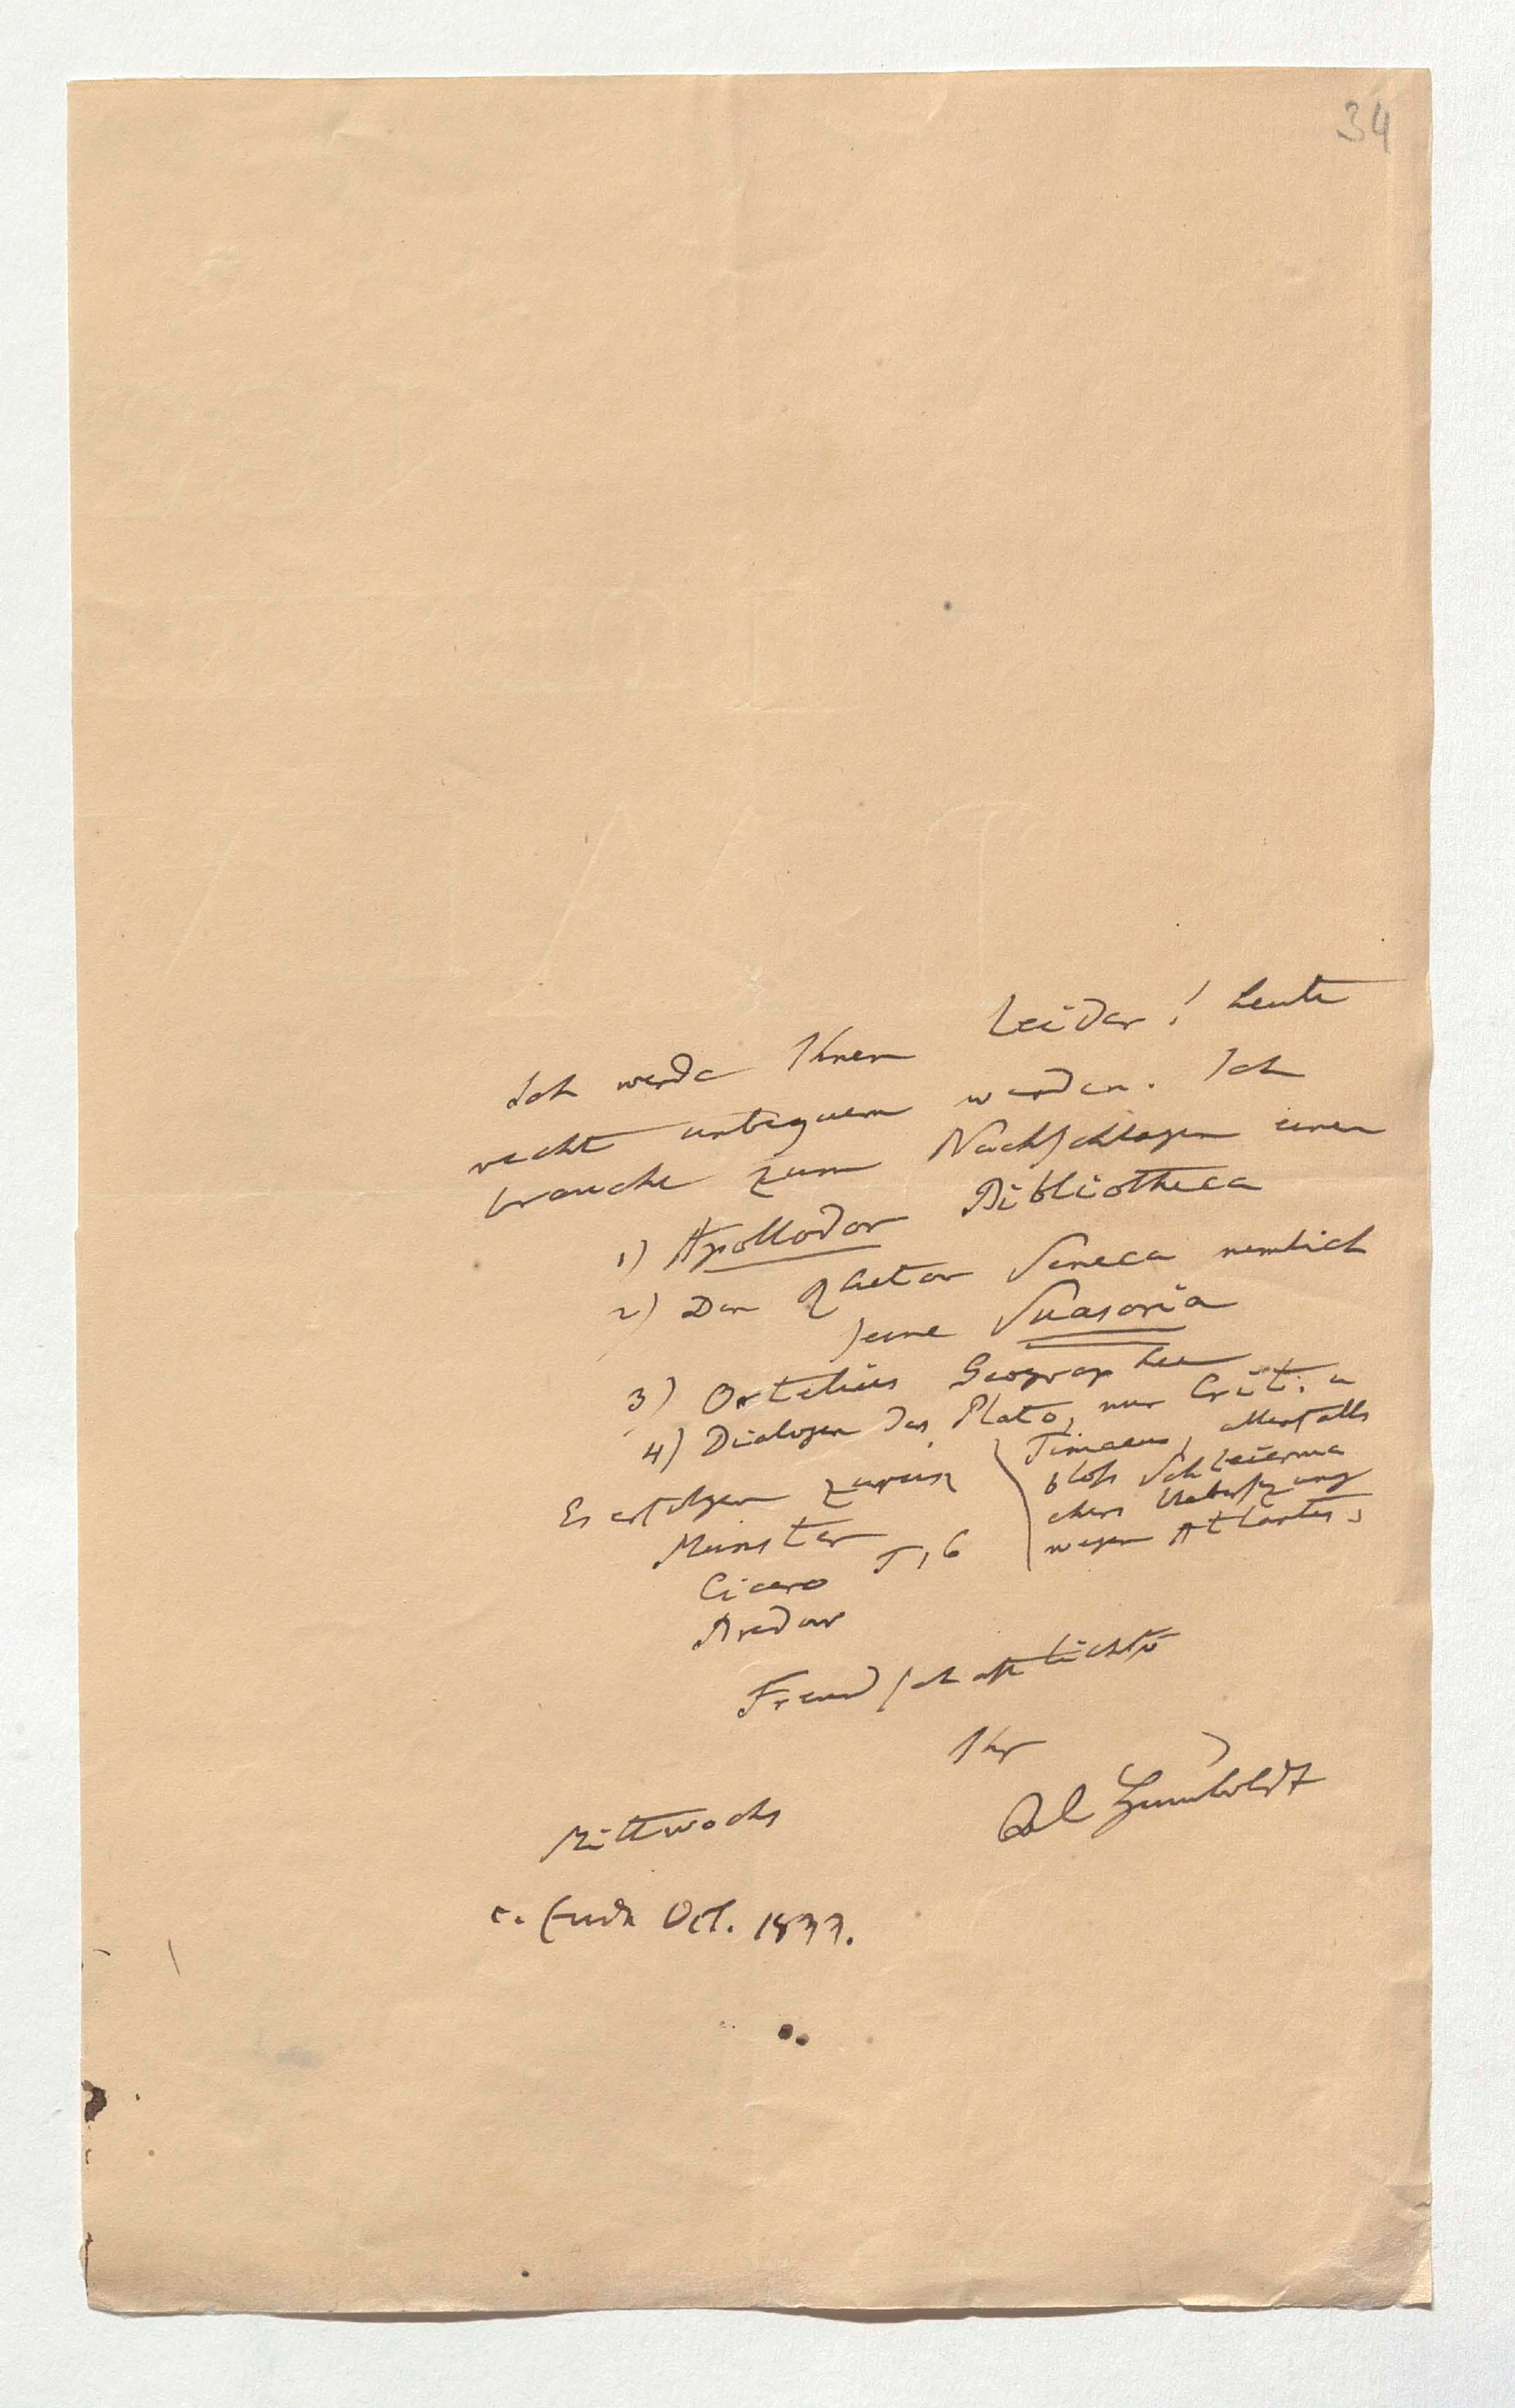 34
Ich werde Ihnen Leider! heute
recht unbequem werden. Ich
brauche zum Nachschlagen einen
1) Apollodor Bibliotheca
2) Den Rhetor Seneca nemlich
seine Suasoria
3) Ortelius Geographie
4) Dialogen des Plato, nur Criti. u
Timaeus, allenfalls
blos Schleierma
chers Uebersezung
wegen Atlantis.
Es erfolgen zurük
Münster
Cicero T, 6
Freundschaftlichst
Ihr
Al Humboldt
Mittwochs
c. Ende Oct. 1837.